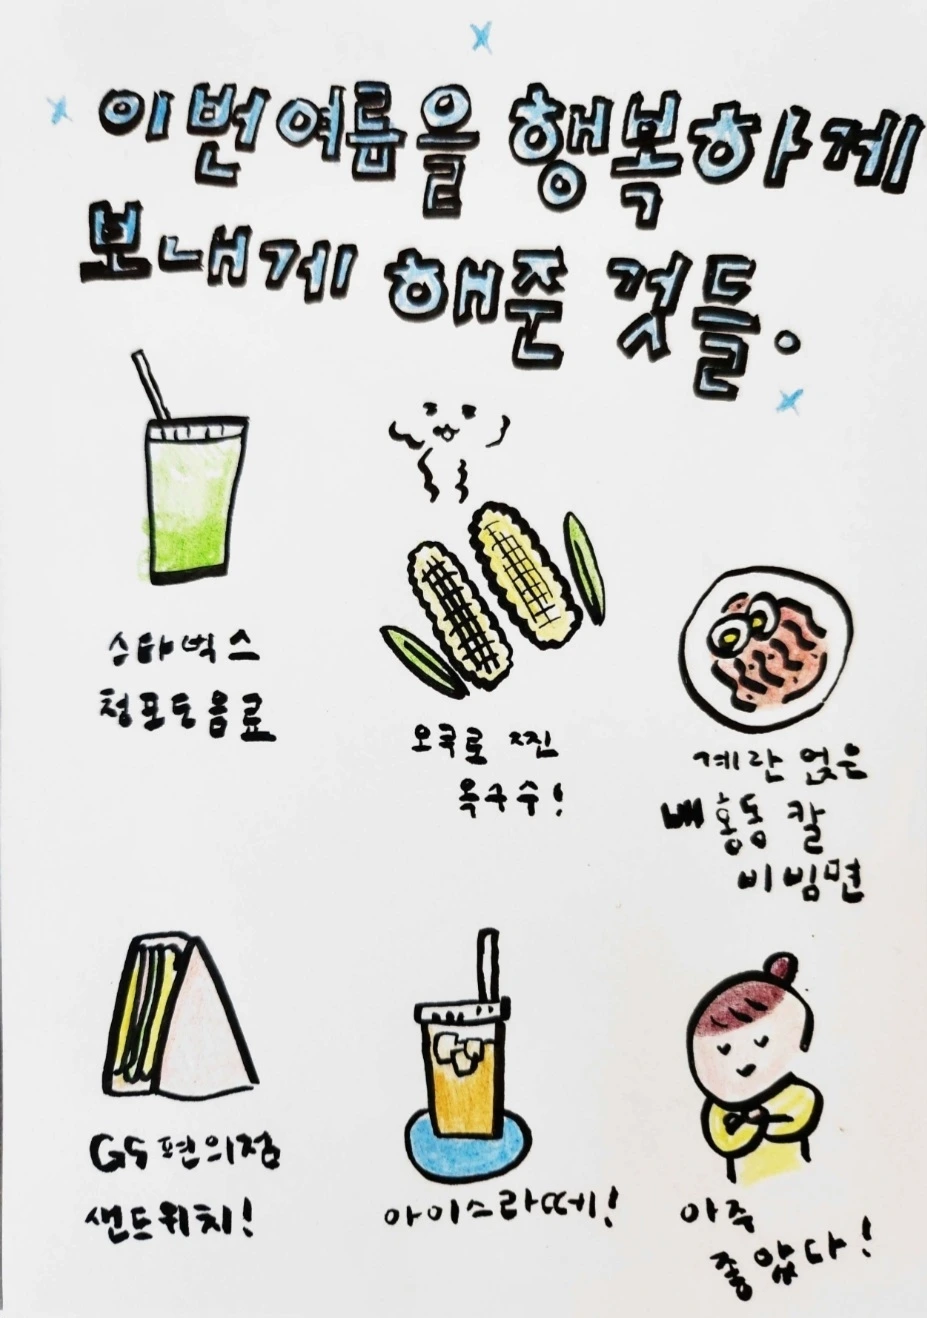 이번여름을 행복하게
보내게 해준 것들。
스타벅스
청포도음료
오쿠로 찐
옥수수!
계란 얹은
배홍동 칼
비빔면
GS편의점
샌드위치!
아이스라떼!
아주
좋았다!